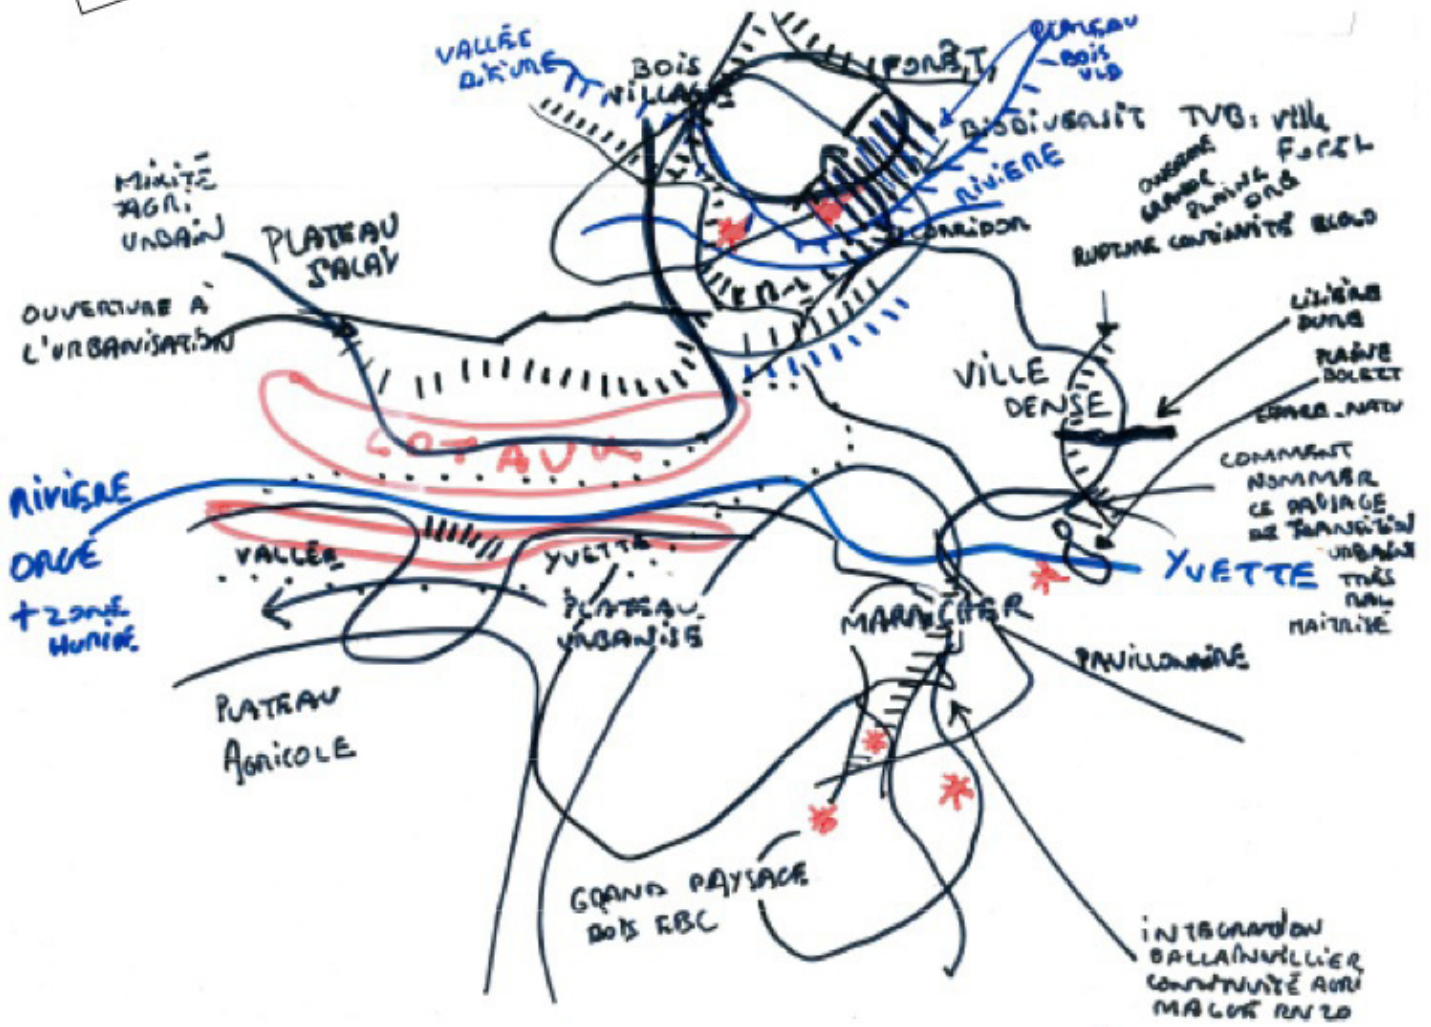 VALLÉE
BOIS
VILLAGE
FORÊT
PLATEAU
BOIS
BIODIVERSIT TVB: Ville
RIVIERE
CORRIDOR
RUPTURE CONTINUITÉ
MIXITÉ
AGRI
URBAIN
PLATEAU
SALAY
OUVERTURE À
L'URBANISATION
LISIÈRE
PLAINE
VILLE
DENSE
COTAUX
COMMENT
NOMMER
CE PAYSAGE
DE TRANSITION
URBAIN
TRÈS
MAL
MAITRISÉ
RIVIERE
ORGE
+ ZONE
HUMIDE
VALLÉE
YVETTE
YVETTE
PLATEAU
URBANISÉ
MARAICHER
PAVILLONAIRE
PLATEAU
AGRICOLE
GRAND PAYSAGE
BOIS EBC
INTEGRATION
BALLAINVILLIER
CONTINUITÉ AGRI
MALGRÉ RN20